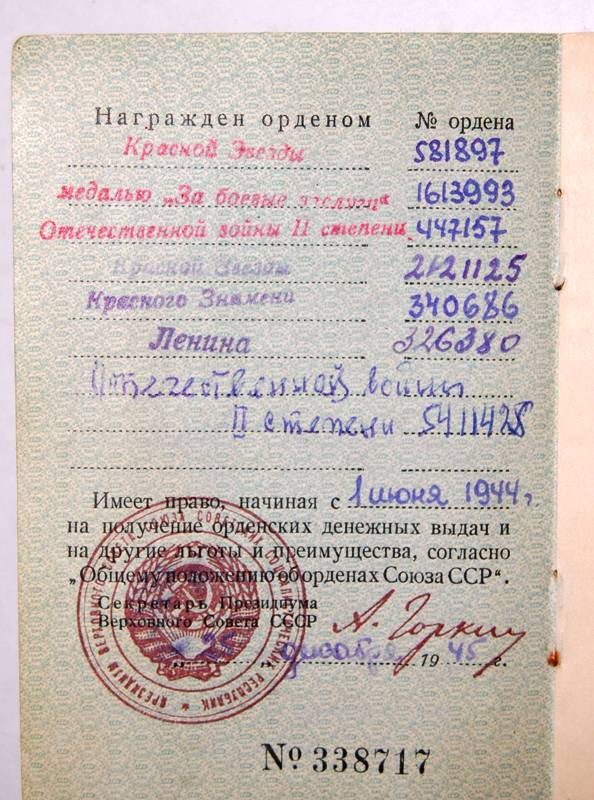 Награжден орденом № ордена
Красной Звезды 581897
медалью „За боевые заслуги“ 1613993
Отечественной войны II степени 447157
Красной Звезды 2121125
Красного Знамени 340686
Ленина 326380
Отечественной войны
II степени 5411428
Имеет право, начиная с 1 июня 1944 г.
на получение орденских денежных выдач и
на другие льготы и преимущества, согласно
„Общему положению об орденах Союза ССР“.
Секретарь Президиума
Верховного Совета СССР А. Горкин
декабря 1945 г.
ПРЕЗИДИУМ ВЕРХОВНОГО СОВЕТА СОЮЗА СОВЕТСКИХ СОЦИАЛИСТИЧЕСКИХ РЕСПУБЛИК
№ 338717